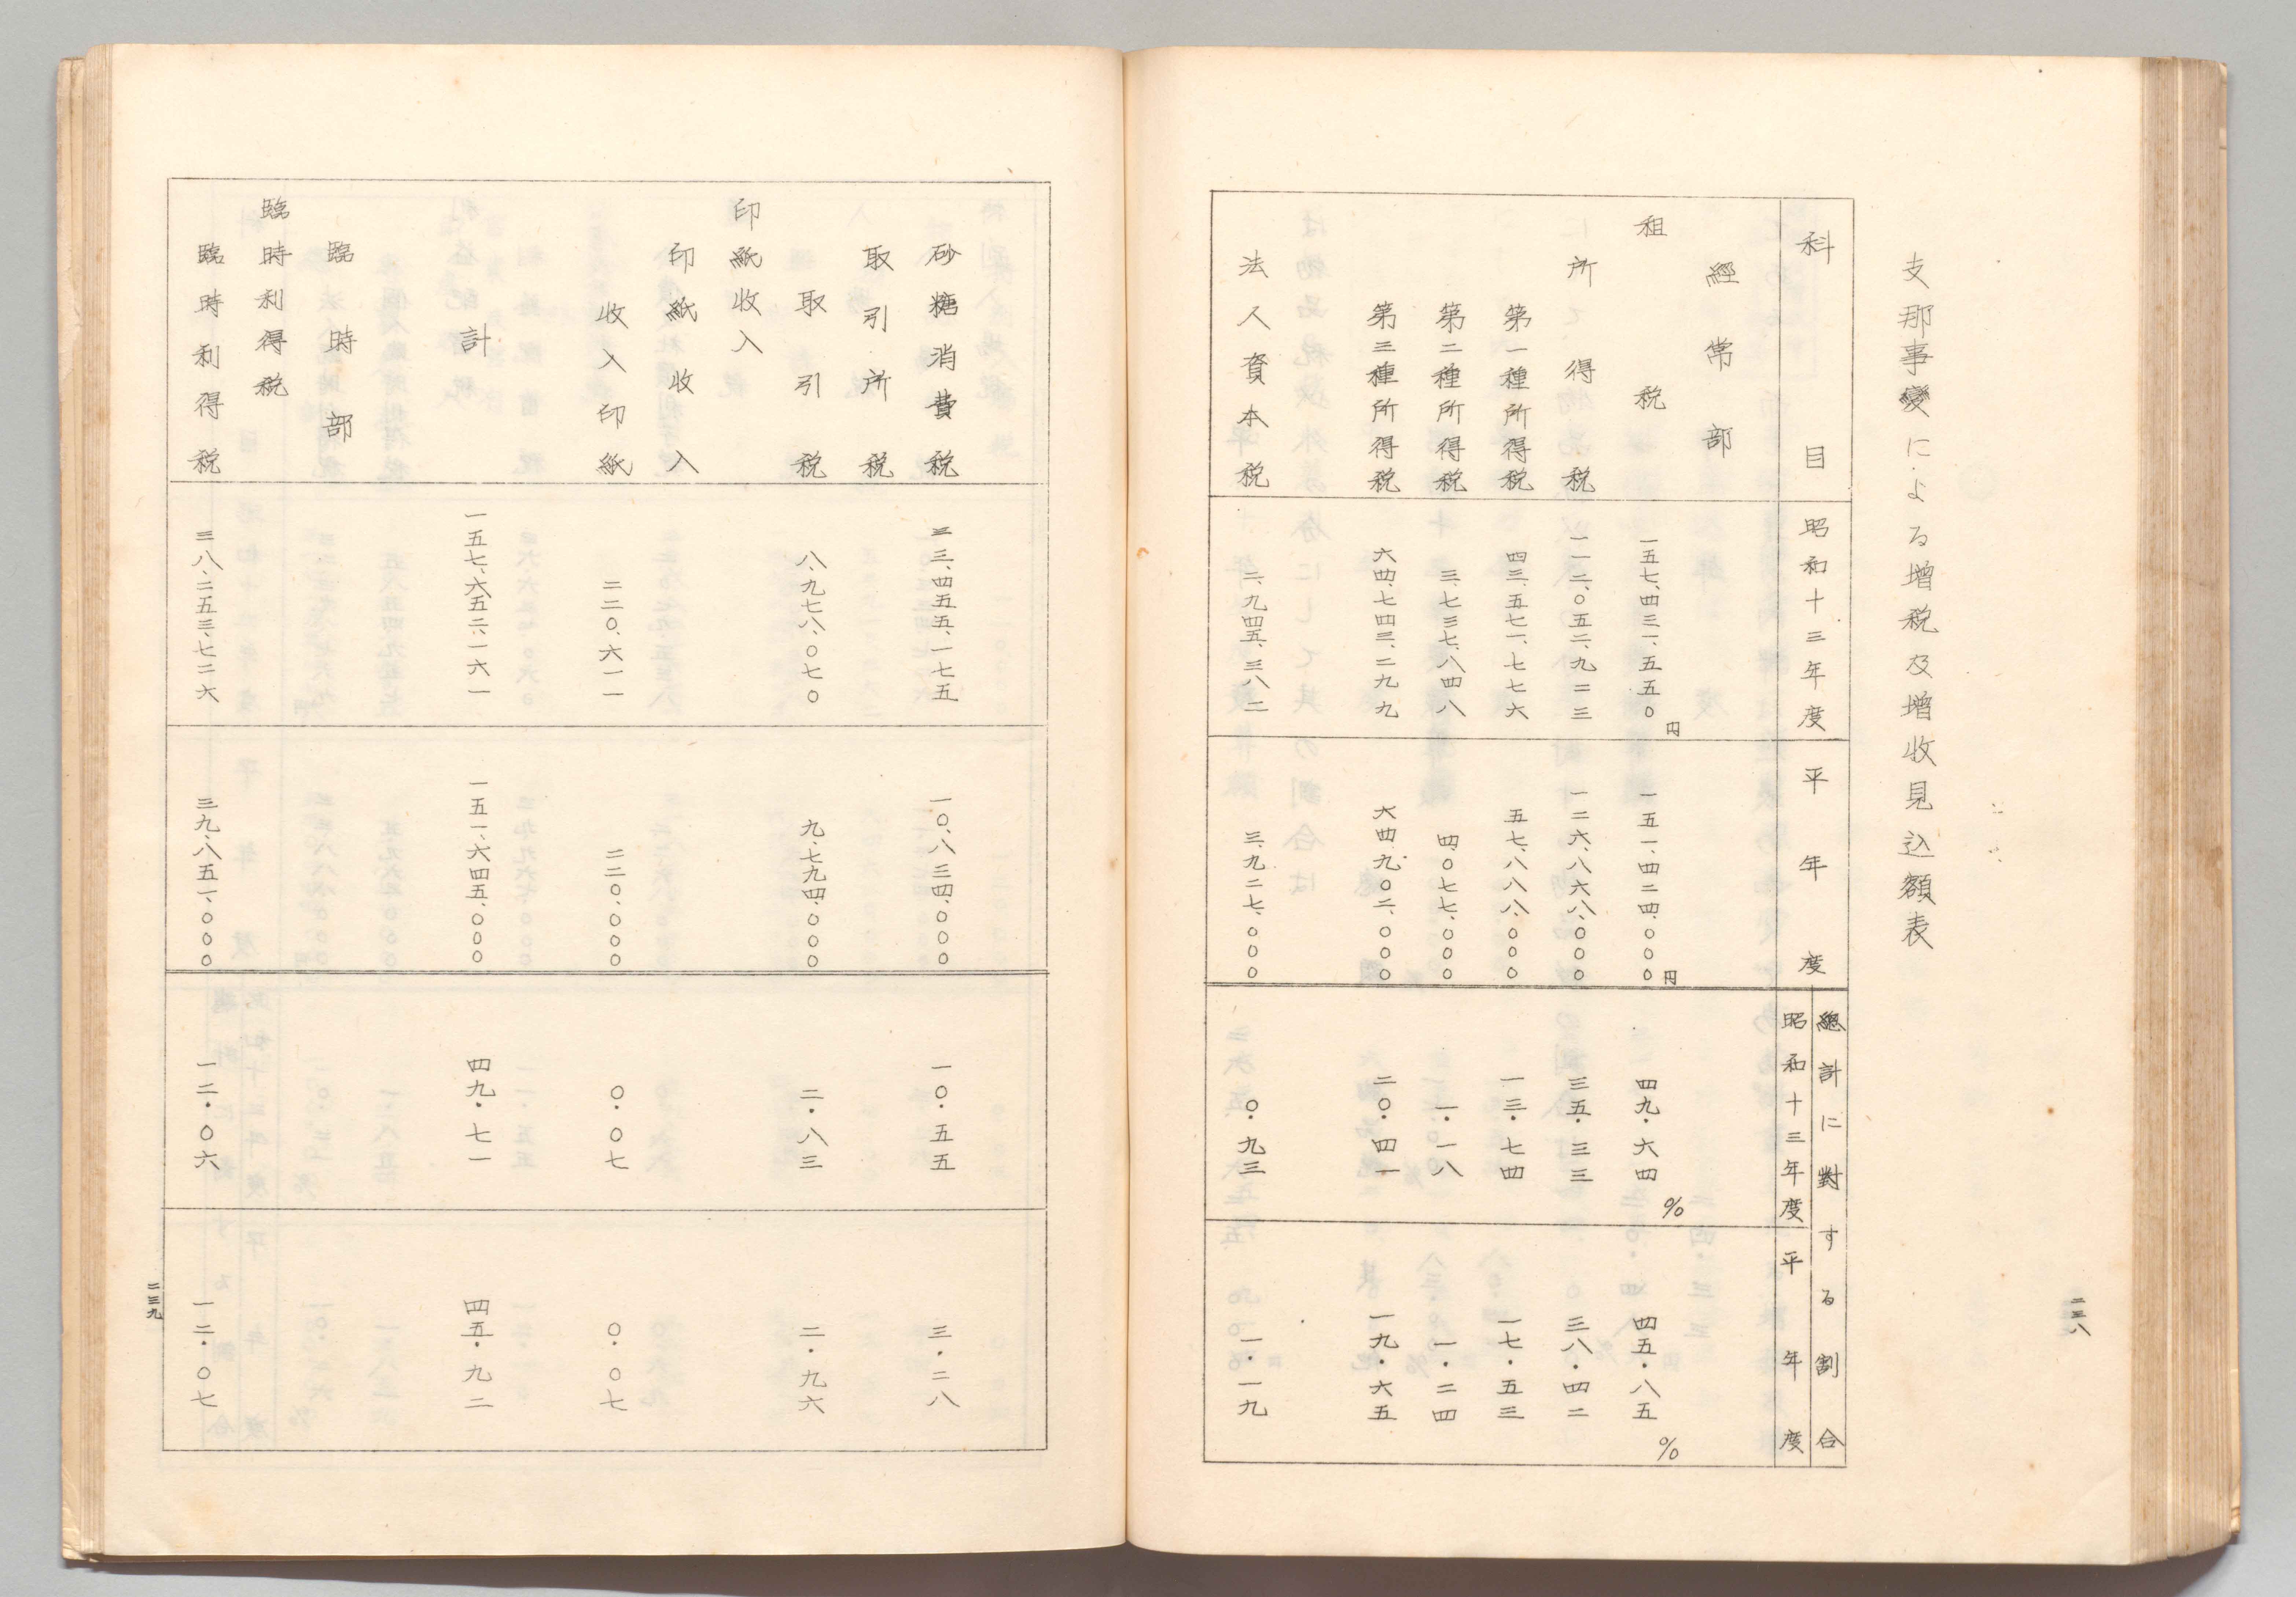 二三八
支那事變による増税及増收見込額表
科目 昭和十三年度 平年度 總計に對する割合
昭和十三年度 平年度
經常部
租税 一五七、四三一、五五〇円 一五一、四二四、〇〇〇円 四九・六四% 四五・八五%
所得税 一一二、〇五二、九二三 一二六、八六八、〇〇〇 三五・三三 三八・四二
第一種所得税 四三、五七一、七七六 五七、八八八、〇〇〇 一三・七四 一七・五三
第二種所得税 三、七三七、八四八 四、〇七七、〇〇〇 一・一八 一・二四
第三種所得税 六四、七四三、二九九 六四、九〇二、〇〇〇 二〇・四一 一九・六五
法人資本税 二、九四五、三八二 三、九二七、〇〇〇 〇・九三 一・一九
砂糖消費税 三三、四五五、一七五 一〇、八三四、〇〇〇 一〇・五五 三・二八
取引所税
取引税 八、九七八、〇七〇 九、七九四、〇〇〇 二・八三 二・九六
印紙收入
印紙收入
收入印紙 二二〇、六一一 二二〇、〇〇〇 〇・〇七 〇・〇七
計 一五七、六五二、一六一 一五一、六四五、〇〇〇 四九・七一 四五・九二
臨時部
臨時利得税
臨時利得税 三八、二五三、七二六 三九、八五一、〇〇〇 一二・〇六 一二・〇七
二三九